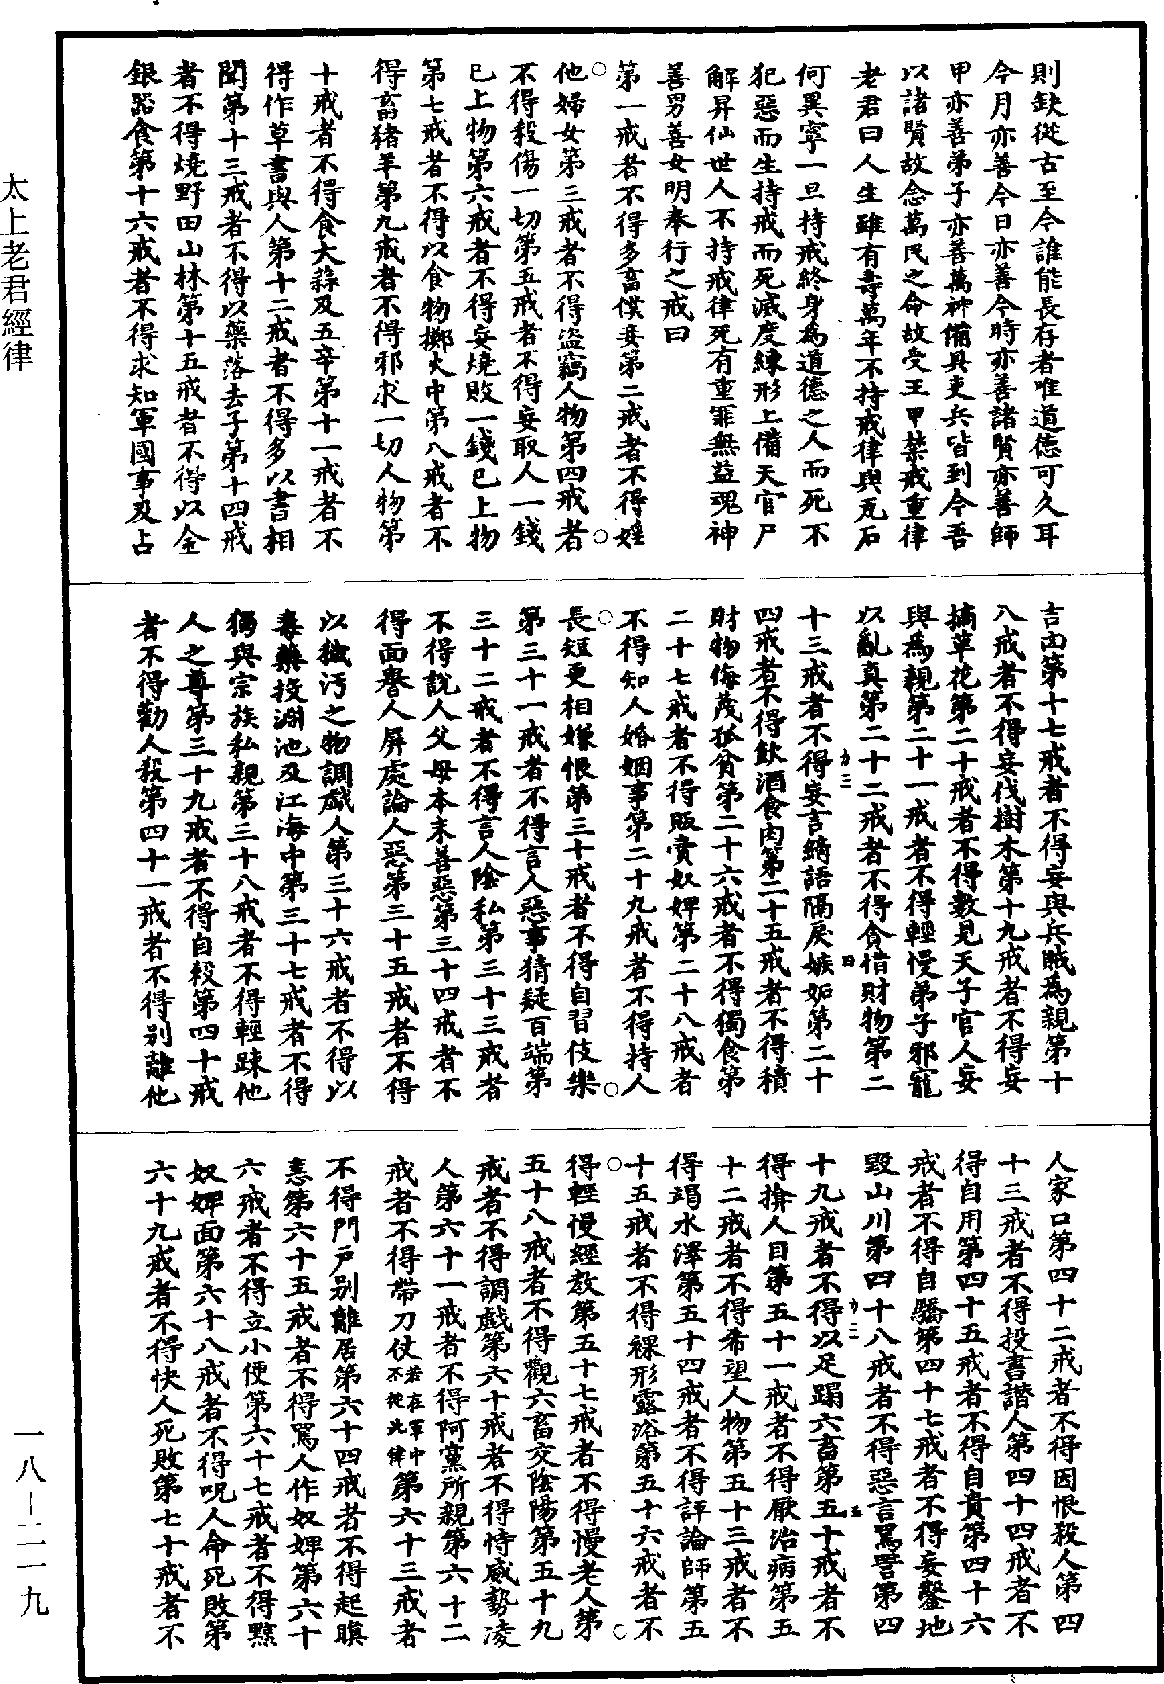 則缺從古至今誰能長存者唯道德可久耳
今月亦善今日亦善今時亦善諸賢亦善師
甲亦善弟子亦善萬神備具吏兵皆到今吾
以諸賢故念萬民之命故受王甲禁戒重律
老君曰人生雖有壽萬年不持戒律與瓦石
何異寧一旦持戒終身為道德之人而死不
犯惡而生持戒而死滅度練形上備天官尸
解昇仙世人不持戒律死有重罪無益魂神
善男善女明奉行之戒曰
第一戒者不得多畜僕妾第二戒者不得婬
他婦女第三戒者不得盜竊人物第四戒者
不得殺傷一切第五戒者不得妄取人一錢
已上物第六戒者不得妄燒敗一錢已上物
第七戒者不得以食物擲火中第八戒者不
得畜猪羊第九戒者不得邪求一切人物第
十戒者不得食大蒜及五辛第十一戒者不
得作草書與人第十二戒者不得多以書相
聞第十三戒者不得以藥落去子第十四戒
者不得燒野田山林第十五戒者不得以金
銀器食第十六戒者不得求知軍國事及占
吉凶第十七戒者不得妄與兵賊為親第十
八戒者不得妄伐樹木第十九戒者不得妄
摘草花第二十戒者不得數見天子官人妄
與為親第二十一戒者不得輕慢弟子邪寵
以亂真第二十二戒者不得貪惜財物第二
十三戒者不得妄言綺語隔戾嫉妬第二十
四戒者不得飲酒食肉第二十五戒者不得積
財物侮蔑孤貧第二十六戒者不得獨食第
二十七戒者不得販賣奴婢第二十八戒者
不得知人婚姻事第二十九戒者不得持人
長短更相嫌恨第三十戒者不得自習伎樂
第三十一戒者不得言人惡事猜疑百端第
三十二戒者不得言人陰私第三十三戒者
不得說人父母本末善惡第三十四戒者不
得面譽人屏處論人惡第三十五戒者不得
以穢污之物調戲人第三十六戒者不得以
毒藥投淵池及江海中第三十七戒者不得
獨與宗族私親第三十八戒者不得輕踈他
人之尊第三十九戒者不得自殺第四十戒
者不得勸人殺第四十一戒者不得別離他
人家口第四十二戒者不得因恨殺人第四
十三戒者不得投書譖人第四十四戒者不
得自用第四十五戒者不得自貴第四十六
戒者不得自驕第四十七戒者不得妄鑿地
毀山川第四十八戒者不得惡言罵詈第四
十九戒者不得以足蹋六畜第五十戒者不
得揜人目第五十一戒者不得厭治病第五
十二戒者不得希望人物第五十三戒者不
得竭水澤第五十四戒者不得評論師第五
十五戒者不得裸形露浴第五十六戒者不
得輕慢經教第五十七戒者不得慢老人第
五十八戒者不得觀六畜交陰陽第五十九
戒者不得調戲第六十戒者不得恃威勢凌
人第六十一戒者不得阿黨所親第六十二
戒者不得帶刀仗若在軍中不從此律第六十三戒者
不得門戶別離居第六十四戒者不得起瞋
恚第六十五戒者不得罵人作奴婢第六十
六戒者不得立小便第六十七戒者不得黥
奴婢面第六十八戒者不得呪人命死敗第
六十九戒者不得快人死敗第七十戒者不
太上老君經律
一八－二一九